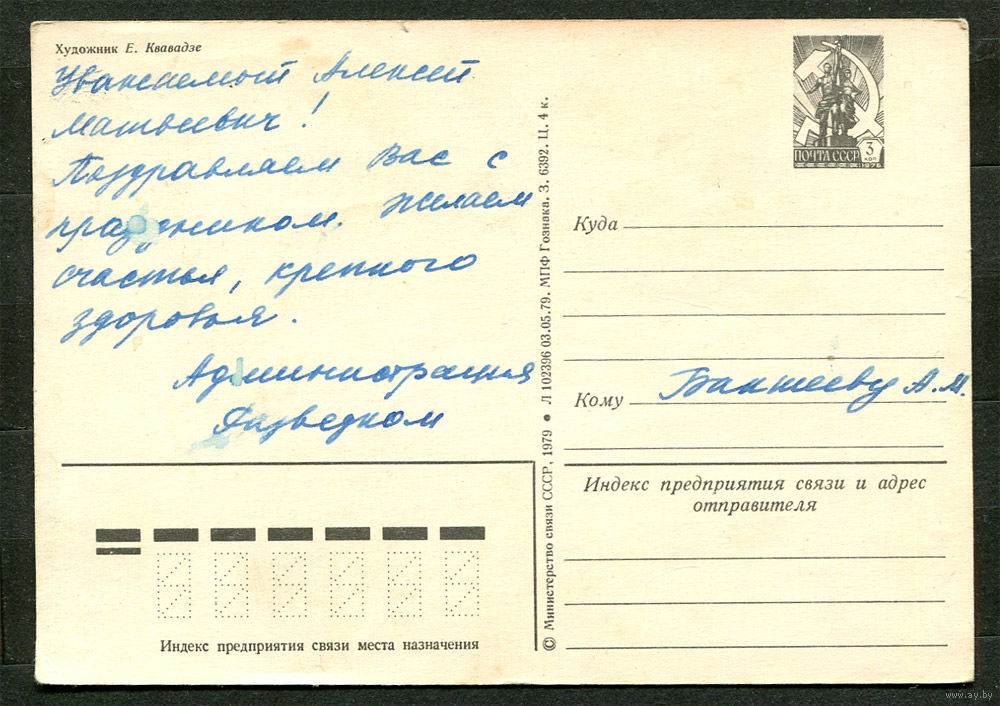 Художник Е. Квавадзе
Уважаемый Алексей
Матвеевич!
Поздравляем Вас с
праздником. Желаем
счастья, крепкого
здоровья.
Администрация
ПОЧТА СССР
3
КОП
1976
Куда
Кому Бакшееву А.М.
Индекс предприятия связи и адрес
отправителя
Индекс предприятия связи места назначения
© Министерство связи СССР, 1979 • Л 102396 03.05.79. МПФ Гознака. З. 6392. Ц. 4 к.
www.ay.by